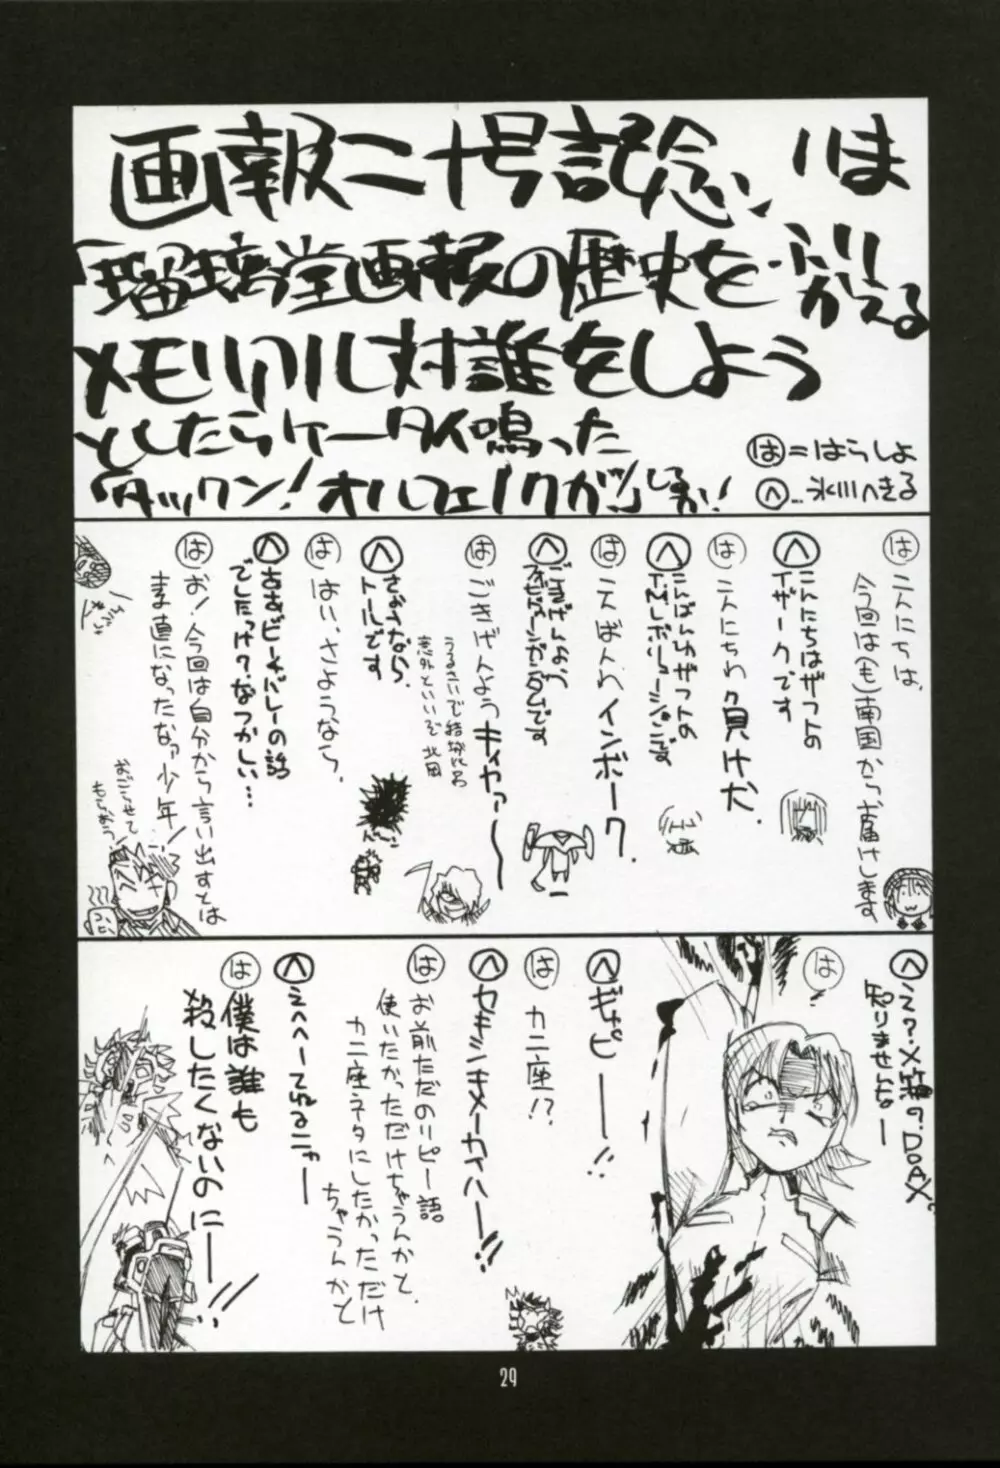 画報二十号記念、いま
「瑠璃堂画報の歴史をふりかえる
メモリアル対談をしよう
としたらケータイ鳴った
「タックン！オルフェノクがッ」しるか！
は＝はらしよ
へ…氷川へきる
は こんにちは、
今回は(も)南国からお届けします
へ こんにちはザフトの
イザークです
は こんにちわ負け犬.
へ こんばんわザフトの
は こんばんわインボーク.
へ ごきげんよう
は ごきげんようキャァ〜
うるさいで結城比呂
意外といいで北田
へ さようなら、
トールです
は はい、さようなら.
へ ああビーチバレーの話
でしたっけ？なつかしい…
は お！今回は自分から言い出すとは
ま直になったなァ少年！
おごらせて
もらおう！
へ え？X箱の？DOAX?
知りませんよー
は ！
へ ギャピー！！
は カニ座！？
へ セキシキメーカイハー！！
は お前ただのリピー語
使いたかっただけちゃうんかと、
カニ座ネタにしたかっただけ
ちゃうんかと
へ えへへーてぬるニャー
は 僕は誰も
殺したくないのにー！！
29